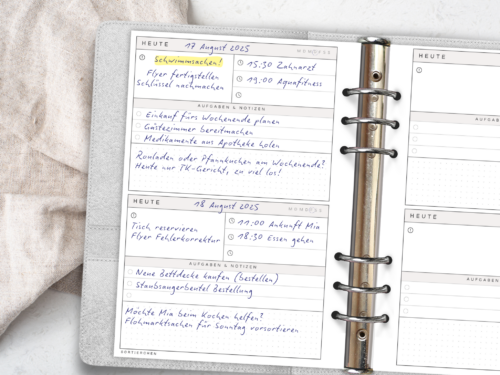 HEUTE 17 August 2025
Schwimmsachen!
Flyer fertigstellen
Schlüssel nachmachen
15:30 Zahnarzt
19:00 Aquafitness
AUFGABEN & NOTIZEN
Einkauf fürs Wochenende planen
Gästezimmer bereitmachen
Medikamente aus Apotheke holen
Rouladen oder Pfannkuchen am Wochenende?
Heute nur TK-Gericht, zu viel los!
HEUTE 18 August 2025
Tisch reservieren
Flyer Fehlerkorrektur
11:00 Ankunft Mia
18:30 Essen gehen
AUFGABEN & NOTIZEN
Neue Bettdecke kaufen (bestellen)
Staubsaugerbeutel Bestellung
Möchte Mia beim Kochen helfen?
Flohmarktsachen für Sonntag vorsortieren
HEUTE
HEUTE